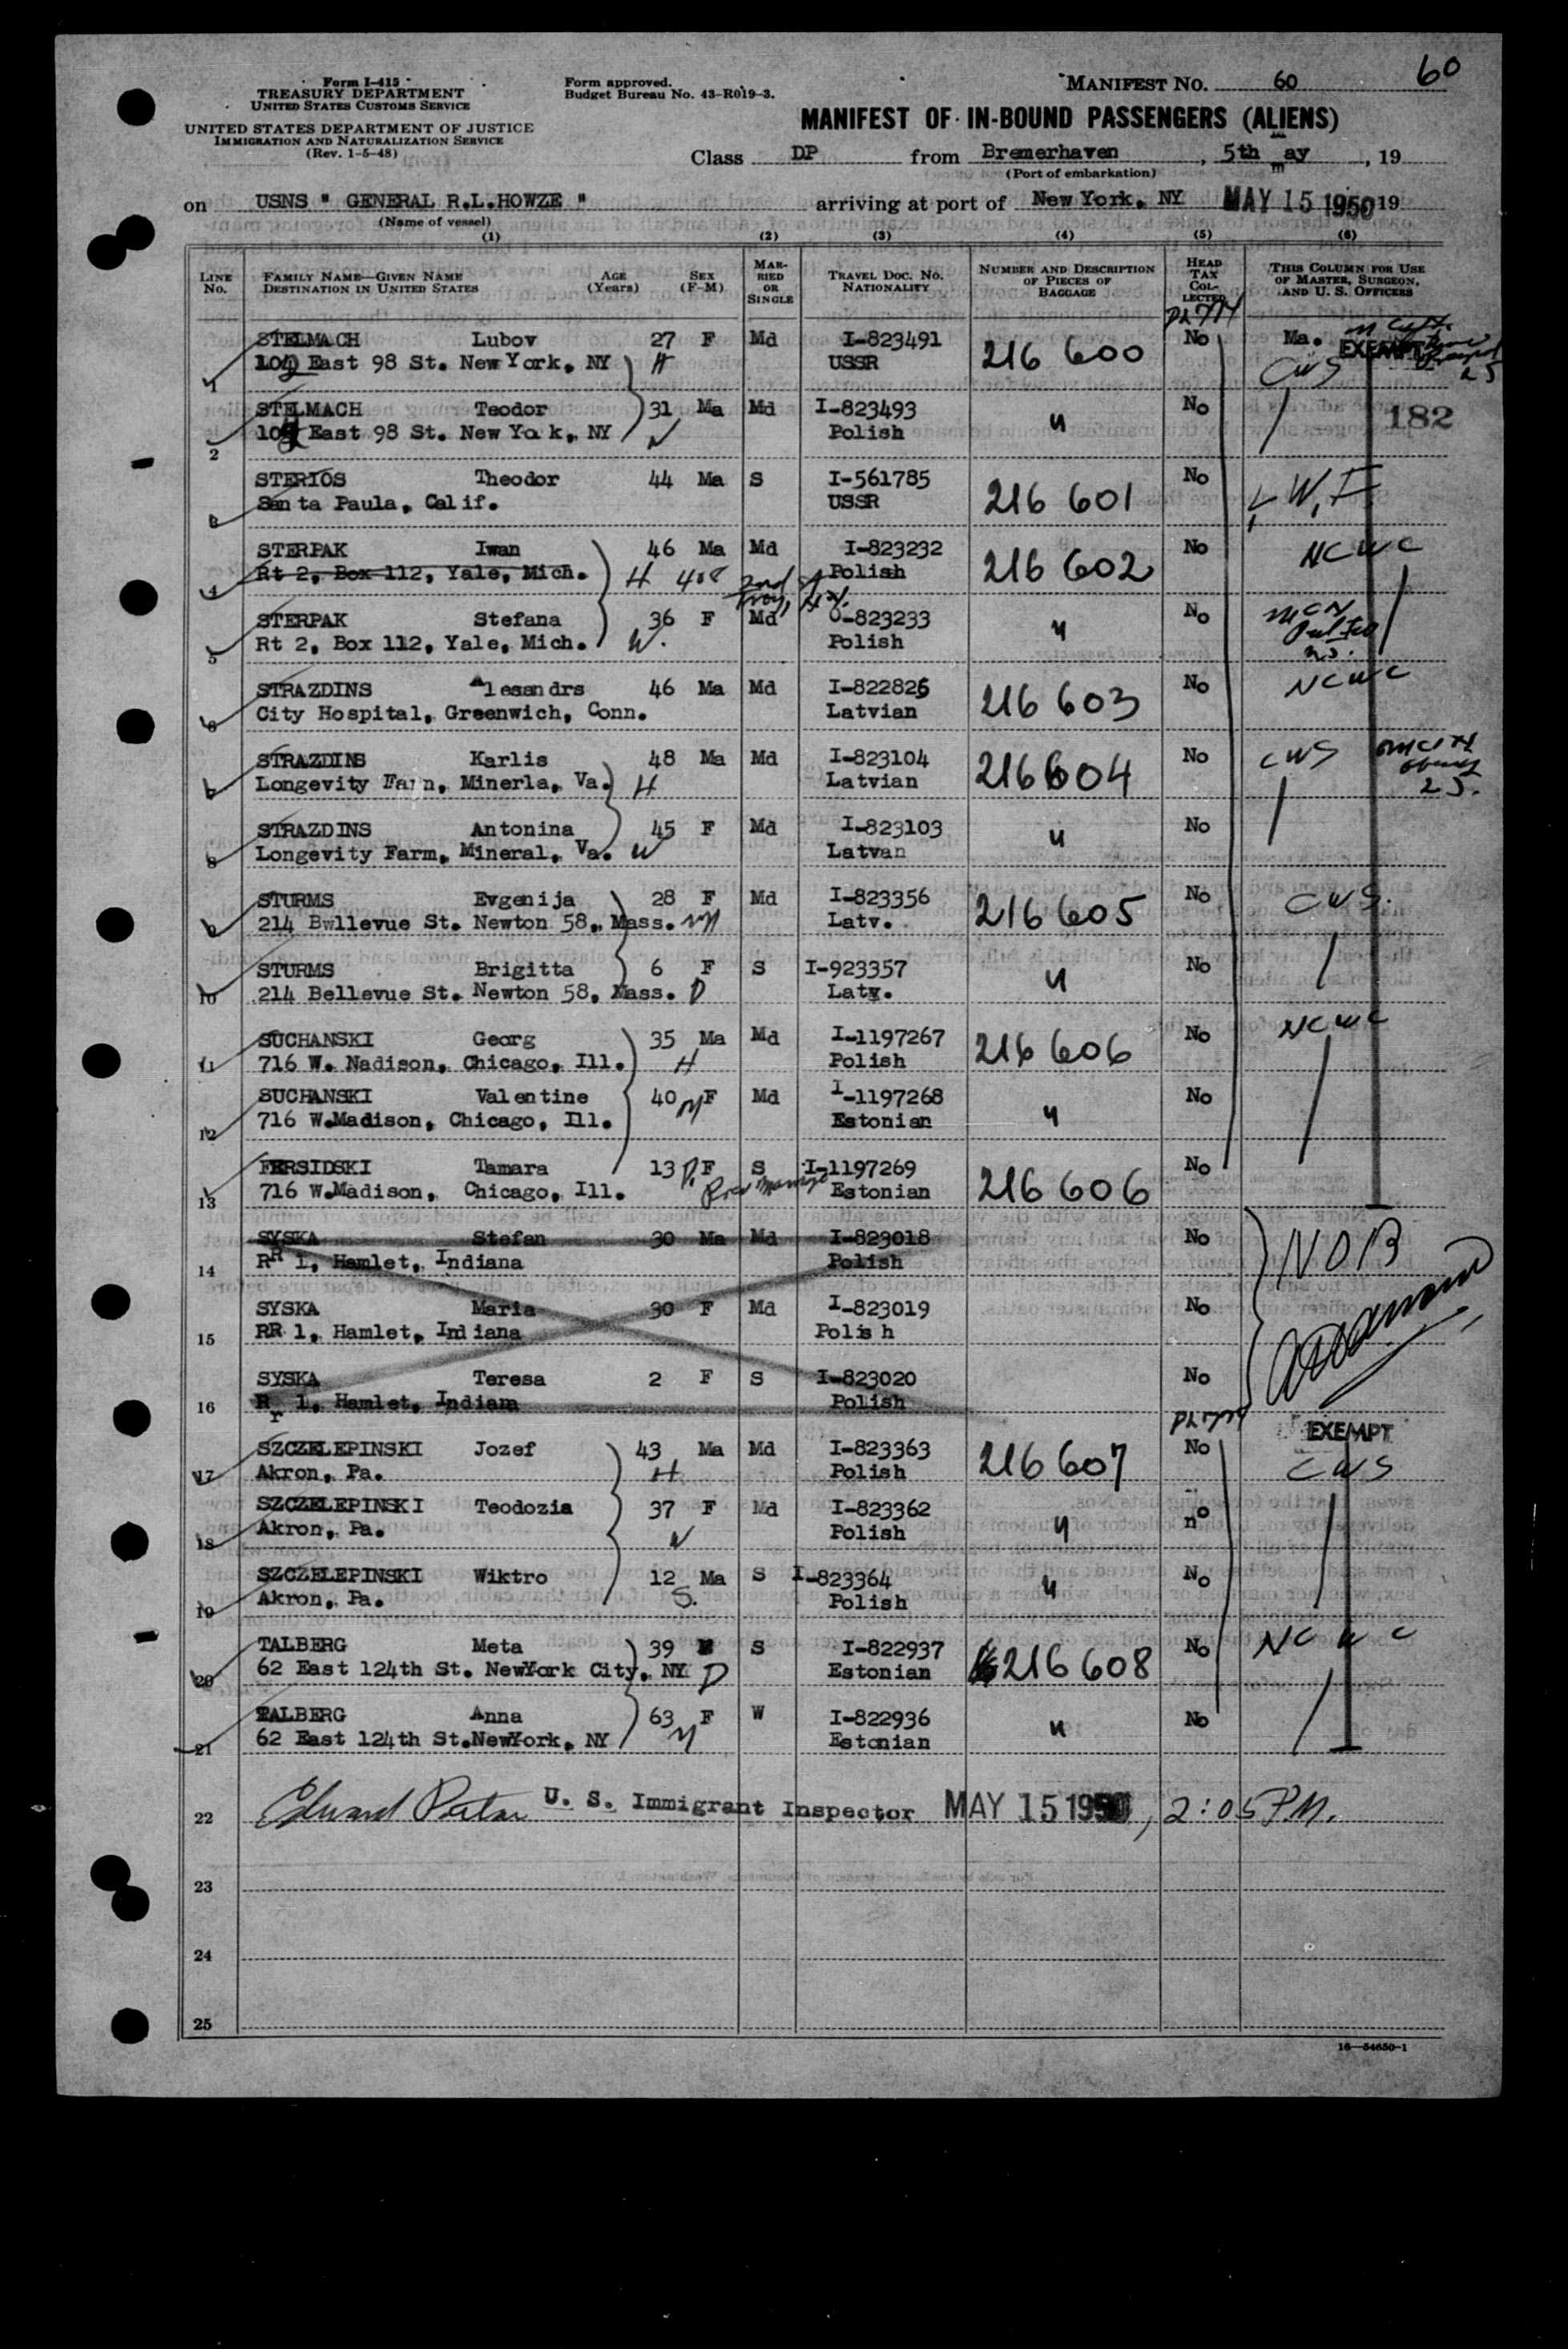 60
Form I-415
TREASURY DEPARTMENT
UNITED STATES CUSTOMS SERVICE
UNITED STATES DEPARTMENT OF JUSTICE
IMMIGRATION AND NATURALIZATION SERVICE
(Rev. 1-5-48)
Form approved.
Budget Bureau No. 43-R019-3.
MANIFEST NO. 60
MANIFEST OF IN-BOUND PASSENGERS (ALIENS)
Class DP from Bremerhaven, 5th may, 19
(Port of embarkation)
on USNS " GENERAL R.L.HOWZE " arriving at port of New York. NY MAY 15 1950 19
(Name of vessel)
(1) (2) (3) (4) (5) (6)
LINE NO. FAMILY NAME—GIVEN NAME DESTINATION IN UNITED STATES AGE (Years) SEX (F-M) MARRIED OR SINGLE TRAVEL DOC. NO. NATIONALITY NUMBER AND DESCRIPTION OF PIECES OF BAGGAGE HEAD TAX COLLECTED THIS COLUMN FOR USE OF MASTER, SURGEON, AND U. S. OFFICERS
PL 774
STELMACH Lubov 27 F Md I-823491 216 600 No Ma. EXEMPT
1 East 98 St. New York, NY H USSR CWS
STELMACH Teodor 31 Ma Md I-823493 " No 182
2 East 98 St. New Yo k, NY W Polish
STERIOS Theodor 44 Ma S I-561785 216 601 No
3 Santa Paula, Calif. USSR L,W,F
STERPAK Iwan 46 Ma Md I-823232 216 602 No NCWC
4 Rt 2, Box 112, Yale, Mich. H 408 2nd St Polish
Troy, N.Y.
STERPAK Stefana 36 F Md -823233 " No
5 Rt 2, Box 112, Yale, Mich. W. Polish
STRAZDINS Alesandrs 46 Ma Md I-822826 216 603 No NCWC
6 City Hospital, Greenwich, Conn. Latvian
STRAZDINS Karlis 48 Ma Md I-823104 216604 No CWS
7 Longevity Farn, Minerla, Va. H Latvian
STRAZDINS Antonina 45 F Md I-823103 " No
8 Longevity Farm, Mineral, Va. W Latvan
STURMS Evgenija 28 F Md I-823356 216605 No CWS.
9 214 Bwllevue St. Newton 58, Mass. M Latv.
STURMS Brigitta 6 F S I-923357 " No
10 214 Bellevue St. Newton 58, Mass. D Latv.
SUCHANSKI Georg 35 Ma Md I-1197267 216 606 No NCWC
11 716 W. Nadison, Chicago, Ill. H Polish
SUCHANSKI Valentine 40 F Md I-1197268 " No
12 716 W.Madison, Chicago, Ill. M Estonian
FERSIDSKI Tamara 13 F S I-1197269 216 606 No
13 716 W.Madison, Chicago, Ill. D. Estonian
SYSKA Stefan 30 Ma Md I-823018 No NOB
14 RR 1, Hamlet, Indiana Polish
SYSKA Maria 30 F Md I-823019 No
15 RR 1, Hamlet, Indiana Polish
SYSKA Teresa 2 F S I-823020 No
16 Rr 1, Hamlet, Indiana Polish
PL 774 EXEMPT
SZCZELEPINSKI Jozef 43 Ma Md I-823363 216 607 No
17 Akron, Pa. H Polish CWS
SZCZELEPINSKI Teodozia 37 F Md I-823362 " no
18 Akron, Pa. W Polish
SZCZELEPINSKI Wiktro 12 Ma S I-823364 " No
19 Akron, Pa. S. Polish
TALBERG Meta 39 S I-822937 216 608 No NCWC
20 62 East 124th St. NewYork City, NY D Estonian
TALBERG Anna 63 F W I-822936 " No
21 62 East 124th St.NewYork, NY M Estonian
22 Edward U. S. Immigrant Inspector MAY 15 1950, 2:05 P.M.
23
24
25
16—54650-1